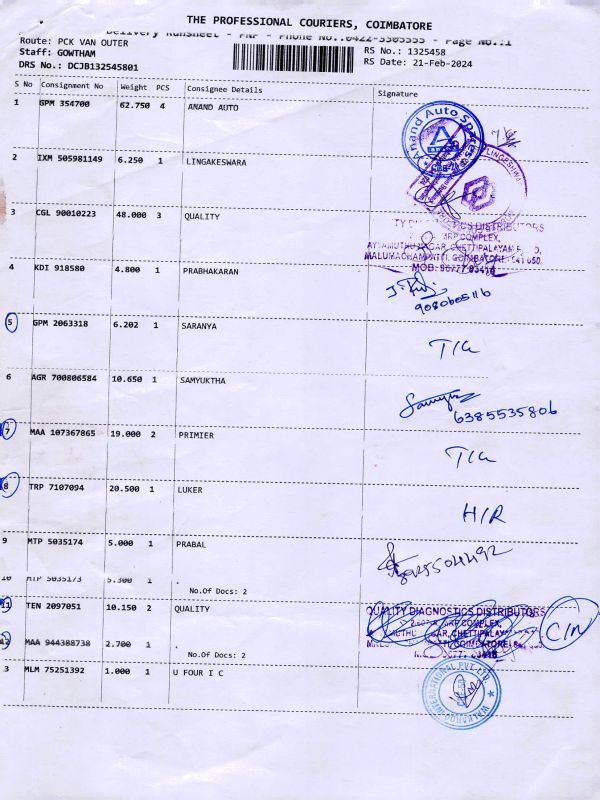 THE PROFESSIONAL COURIERS, COIMBATORE
Delivery Runsheet - PNP - Phone No.:0422-3305555 - Page No.:1
Route: PCK VAN OUTER
Staff: GOWTHAM
DRS No.: DCJB132545801
RS No.: 1325458
RS Date: 21-Feb-2024
S No Consignment No Weight PCS Consignee Details Signature
1 GPM 354700 62.750 4 ANAND AUTO
Anand Auto Spares
2 IXM 505981149 6.250 1 LINGAKESWARA
3 CGL 90010223 48.000 3 QUALITY
TY DIAGNOSTICS DISTRIBUTORS
MRP COMPLEX,
AYYAMUTHU NAGAR, CHETTIPALAYAM
MALUMACHAMPATTI, COIMBATORE - 641 050.
MOB: 96777 03418
4 KDI 918580 4.800 1 PRABHAKARAN
9080605116
5 GPM 2063318 6.202 1 SARANYA
6 AGR 700806584 10.650 1 SAMYUKTHA
6385535806
7 MAA 107367865 19.000 2 PRIMIER
8 TRP 7107094 20.500 1 LUKER
H/R
9 MTP 5035174 5.000 1 PRABAL
10 MTP 5035173 5.300 1 .
No.Of Docs: 2
11 TEN 2097051 10.150 2 QUALITY
QUALITY DIAGNOSTICS DISTRIBUTORS
MRP COMPLEX,
C/N
12 MAA 944388738 2.700 1 .
No.Of Docs: 2
3 MLM 75251392 1.000 1 U FOUR I C